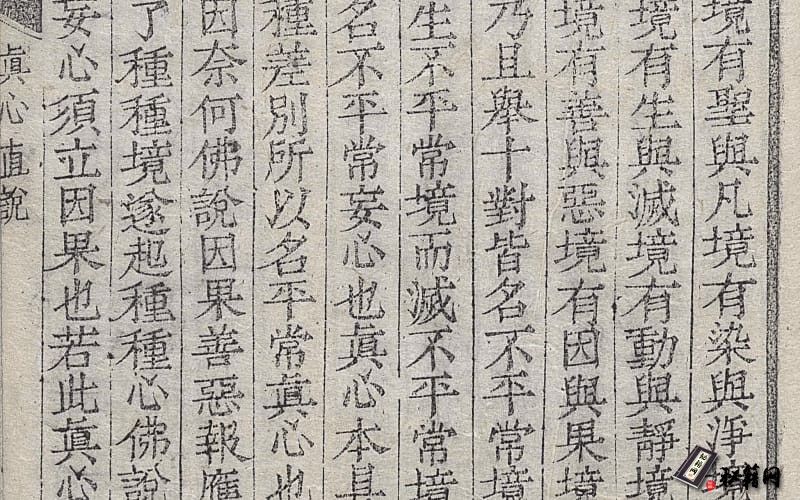 境有聖與凡境有染與淨
境有生與滅境有動與靜境
境有善與惡境有因與果境
乃且舉十對皆名不平常境
生不平常境而滅不平常境
名不平常妄心也眞心本具
種差別所以名平常眞心也
因奈何佛說因果善惡報應
了種種境遂起種種心佛說
妄心須立因果也若此眞心
眞心直說
秘籍网